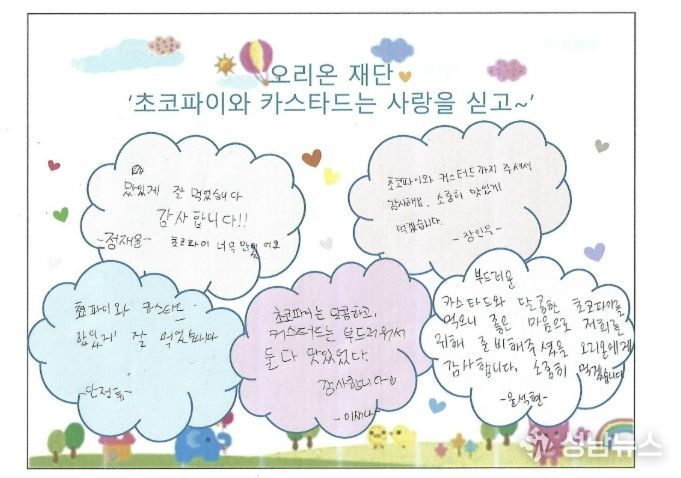 오리온 재단
'초코파이와 카스타드는 사랑을 싣고~'
맛있게 잘 먹었습니다
감사합니다!!
-정재율- 초코파이 너무 맛있어요
초코파이와 커스터드까지 주셔서
감사해요. 소중히 맛있게
먹겠습니다.
-장인우-
초코파이와 카스타드
맛있게 잘 먹었습니다
초코파이는 달콤하고,
커스터드는 부드러워서
둘 다 맛있었다.
감사합니다
부드러운
카스타드와 달콤한 초코파이를
먹으니 좋은 마음으로 저희를
위해 준비해주셨을 오리온에게
감사합니다. 소중히 먹겠습니다
-윤석현-
성남뉴스